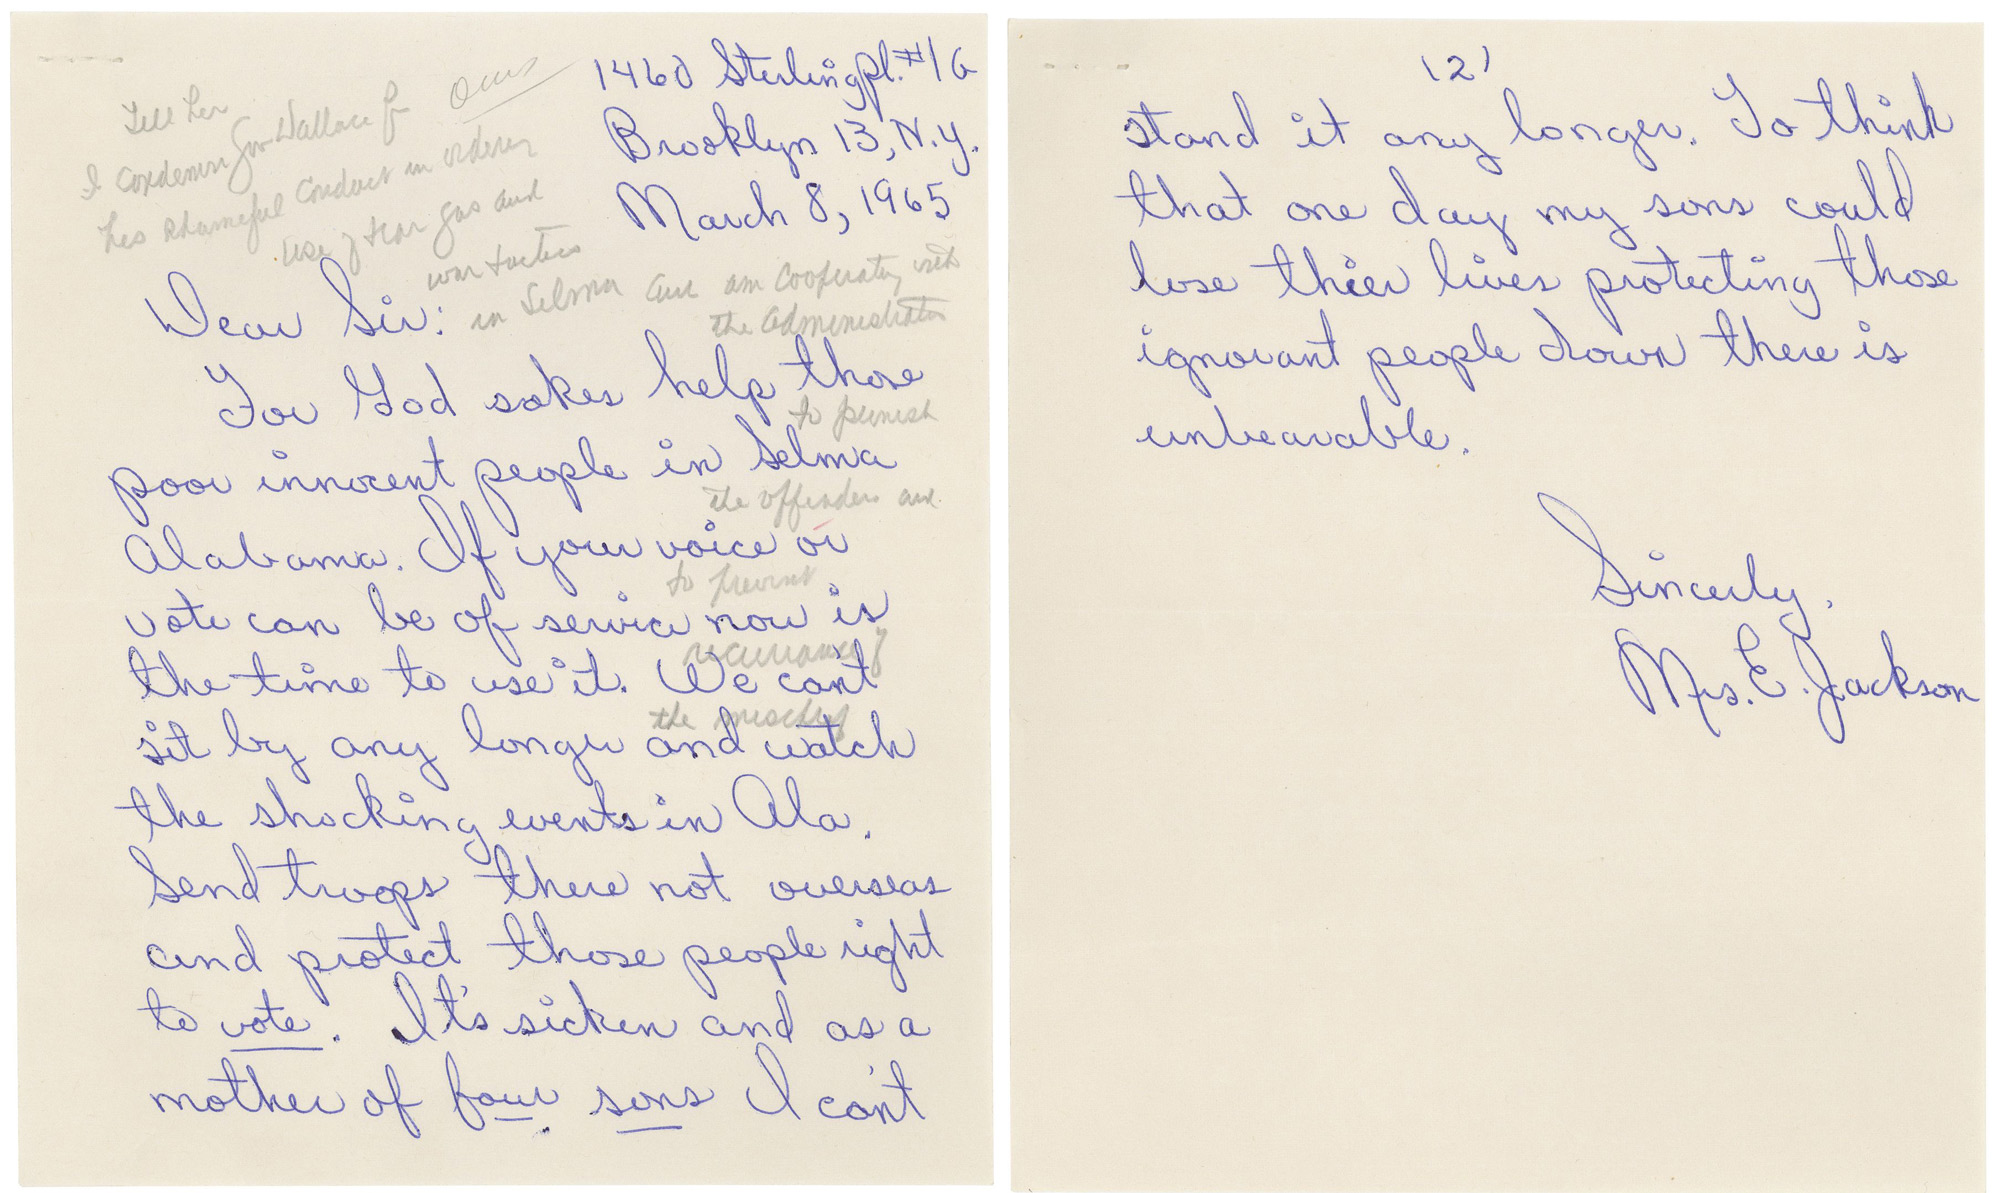 1460 Sterling Pl. #1G
Brooklyn 13, N.Y.
March 8, 1965
Tell her
Ans
I condemn Gov Wallace for
his shameful conduct in ordering
use of tear gas and
war tactics
in Selma and am cooperating with
the administration
to punish
the offenders and
to prevent
recurrance of
the mischief
Dear Sir:
For God sakes help those
poor innocent people in Selma
Alabama. If your voice or
vote can be of service now is
the time to use it. We can't
sit by any longer and watch
the shocking events in Ala.
Send troops there not overseas
and protect those people right
to vote. It's sicken and as a
mother of four sons I can't
(2)
stand it any longer. To think
that one day my sons could
lose thier lives protecting those
ignorant people down there is
unbearable.
Sincerly,
Mrs. E. Jackson